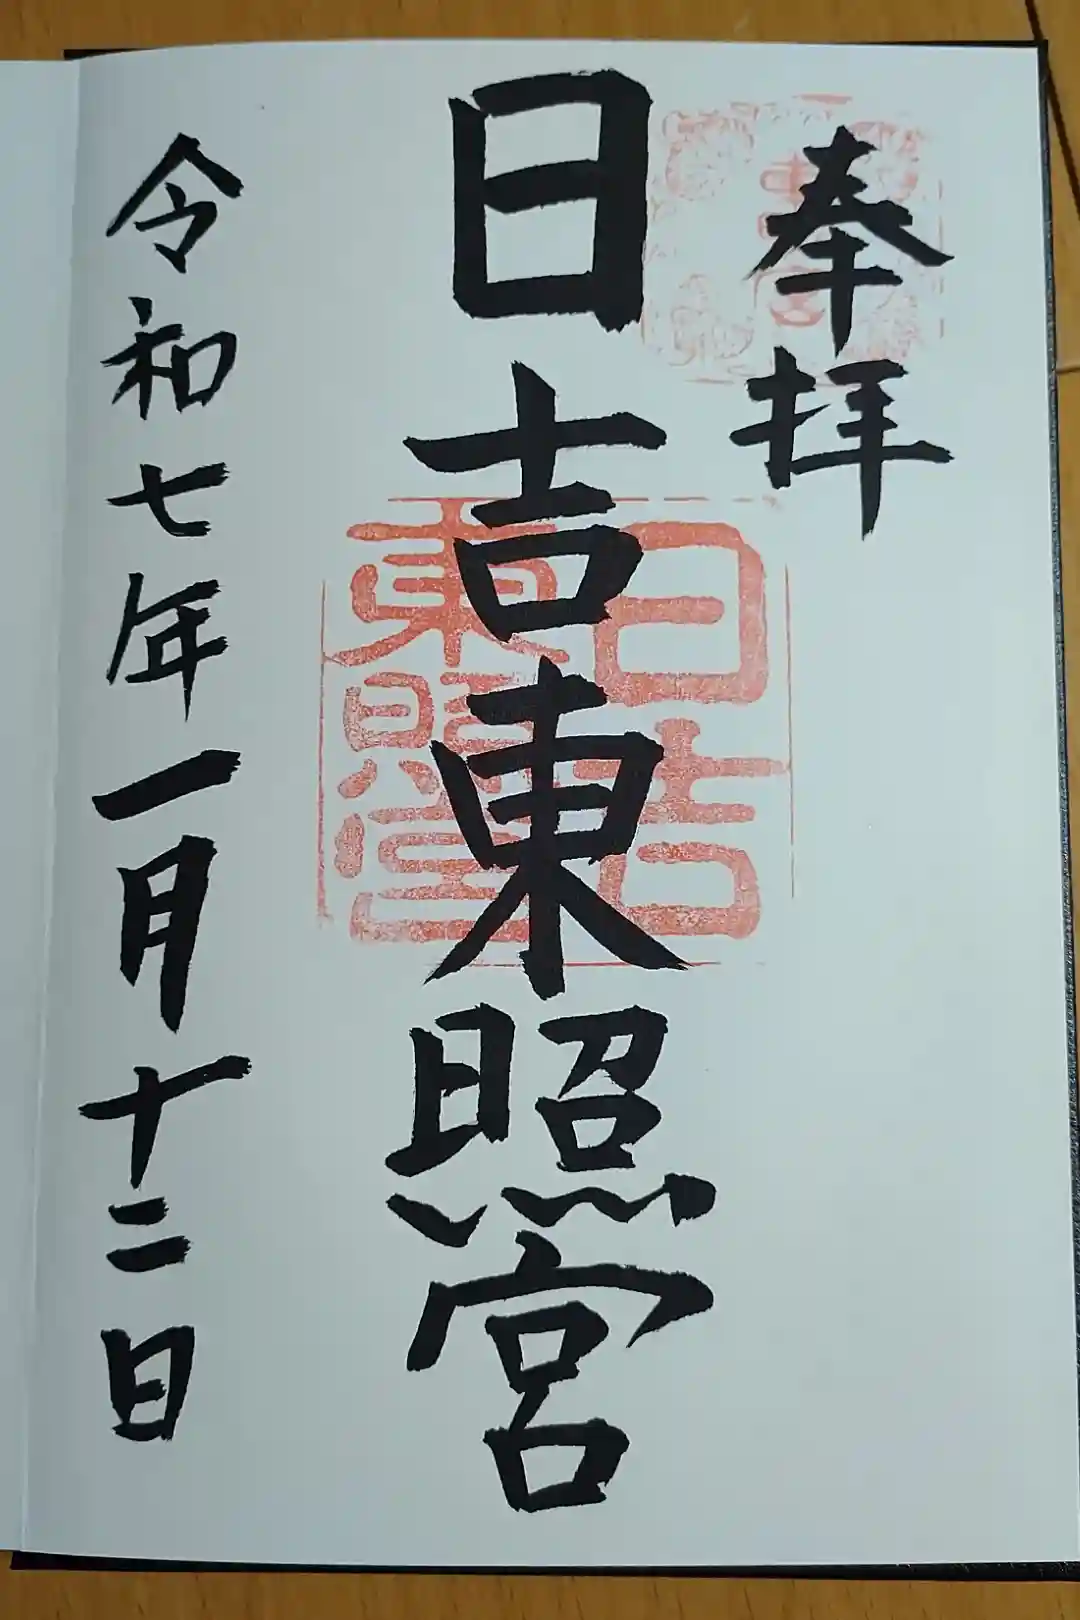 奉拝
日吉東照宮
日吉
東照宮
令和七年一月十二日